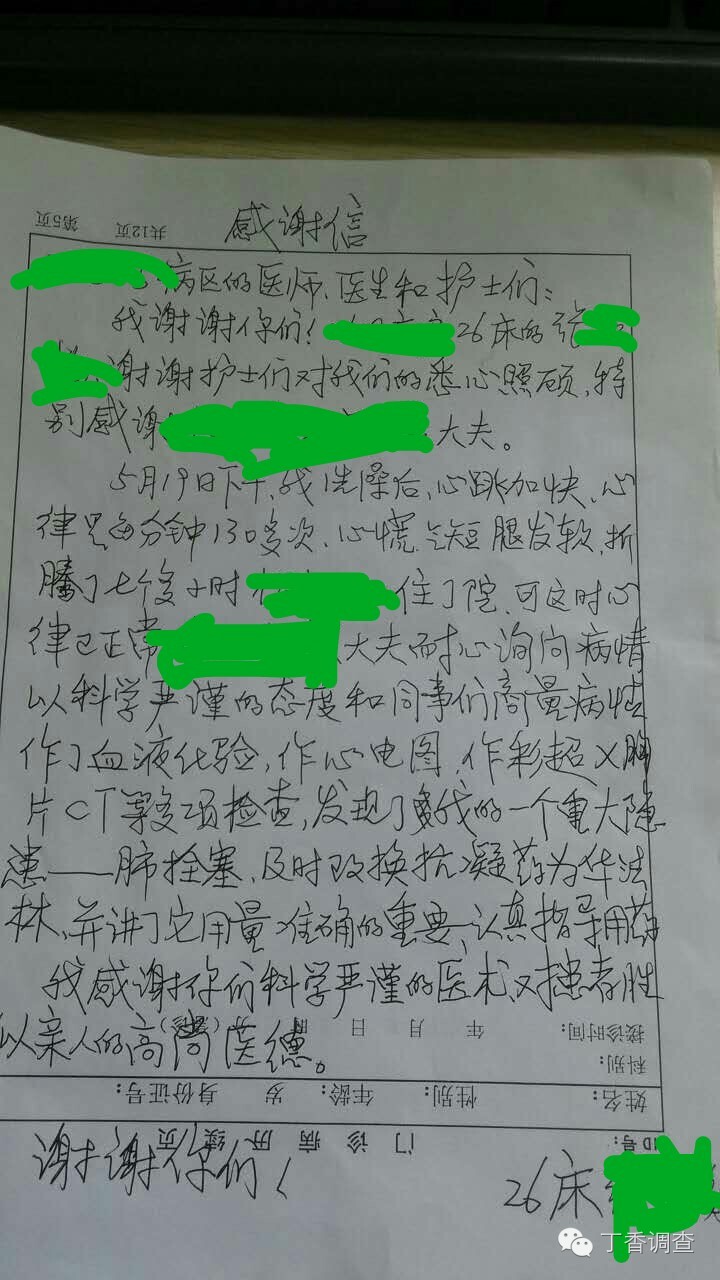 感谢信
共12页 第5页
病区的医师、医生和护士们:
我谢谢你们! 26床的张
谢谢护士们对我们的悉心照顾,特
别感谢 大夫。
5月19日下午,我洗澡后,心跳加快,心
律是每分钟130多次,心慌气短腿发软,折
腾了七个多小时 住了院,可这时心
律已正常 大夫耐心询问病情
以科学严谨的态度和同事们商量病情
作了血液化验,作心电图,作彩超X胸
片CT等多项检查,发现了我的一个重大隐
患——肺拴塞,及时改换抗凝药为华法
林,并讲了它用量准确的重要,认真指导用药
我感谢你们科学严谨的医术,对患者胜
以亲人的高尚医德。
接诊时间: 年 月 日 时 分
科别:
姓名: 性别: 年龄: 岁 身份证号:
ID号: 门诊病历续页
谢谢你们!
26床
丁香调查